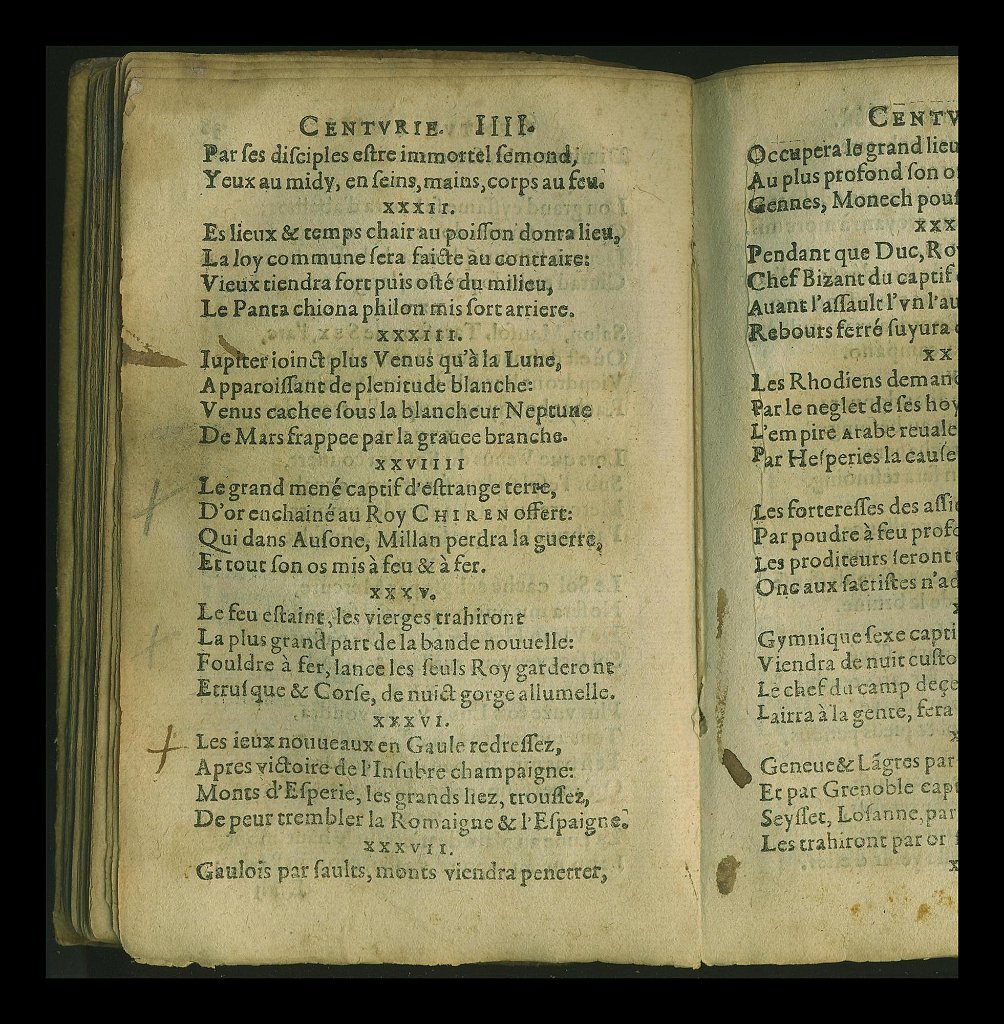 CENTVRIE. IIII.
Par ſes diſciples eſtre immortel ſemond,
Yeux au midy, en ſeins, mains, corps au feu.
XXXII.
Es lieux & temps chair au poiſſon donra lieu,
La loy commune ſera faicte au contraire:
Vieux tiendra fort puis oſté du milieu,
Le Panta chiona philon mis fort arriere.
XXXIII.
Iupiter ioinct plus Venus qu'à la Lune,
Apparoiſſant de plenitude blanche:
Venus cachee ſous la blancheur Neptune
De Mars frappee par la grauee branche.
XXVIIII
Le grand mené captif d'eſtrange terre,
D'or enchainé au Roy CHIREN offert:
Qui dans Auſone, Millan perdra la guerre,
Et tout ſon os mis à feu & à fer.
XXXV.
Le feu eſtaint, les vierges trahiront
La plus grand part de la bande nouuelle:
Fouldre à fer, lance les ſeuls Roy garderont
Etruſque & Corſe, de nuict gorge allumelle.
XXXVI.
Les ieux nouueaux en Gaule redreſſez,
Apres victoire de l'Inſubre champaigne:
Monts d'Eſperie, les grands liez, trouſſez,
De peur trembler la Romaigne & l'Eſpaigne.
XXXVII.
Gaulois par ſaults, monts viendra penetrer,
CENTV
Occupera le grand lieu
Au plus profond ſon o
Gennes, Monech pouſ
XXX
Pendant que Duc, Roy
Chef Bizant du captif
Auant l'aſſault l'vn l'au
Rebours ferré ſuyura
XX
Les Rhodiens deman
Par le neglet de ſes hoy
L'empire Arabe reuale
Par Heſperies la cauſe
Les fortereſſes des aſſie
Par poudre à feu profo
Les proditeurs ſeront
Onc aux ſactiſtes n'ad
X
Gymnique ſexe capti
Viendra de nuit cuſto
Le chef du camp deçe
Lairra à la gente, fera
X
Geneue & Lãgres par
Et par Grenoble capt
Seyſſet, Loſanne, par
Les trahiront par or
X